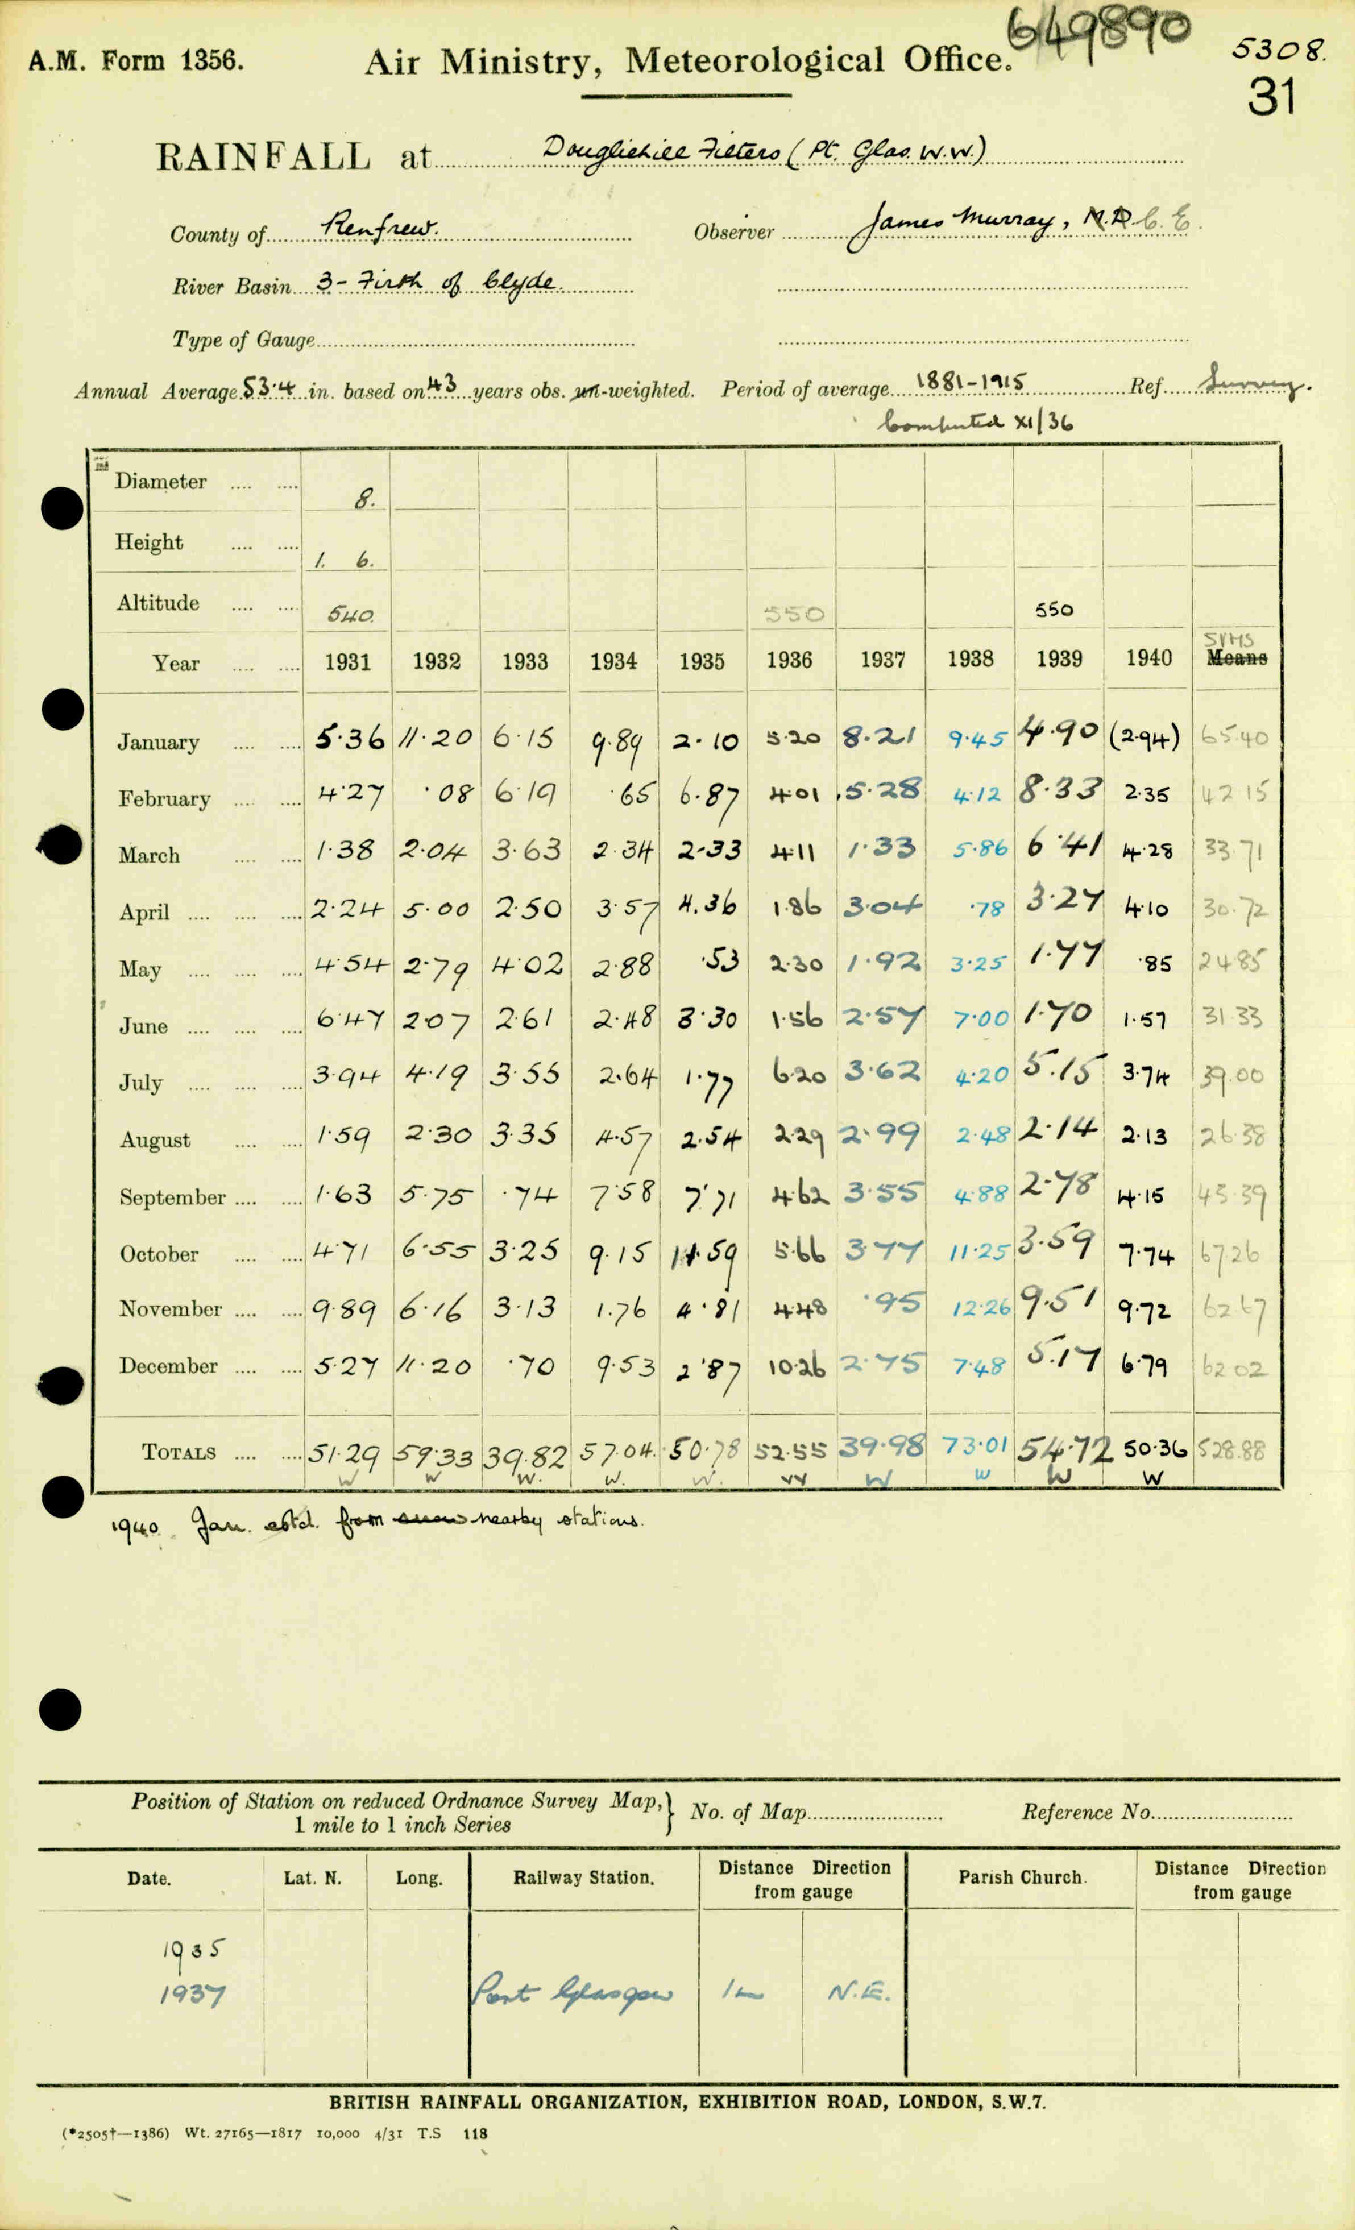 649890
A.M. Form 1356. Air Ministry, Meteorological Office. 5308.
31
RAINFALL at Dougliehill Filters (Pt. Glas. W.W.)
County of Renfrew. Observer James Murray, C.E.
River Basin 3- Firth of Clyde.
Type of Gauge
Annual Average 53·4 in. based on 43 years obs. un-weighted. Period of average 1881-1915 Ref. Survey.
Computed XI/36
Diameter 8.
Height 1. 6.
Altitude 540. 550 550
Year 1931 1932 1933 1934 1935 1936 1937 1938 1939 1940 SUMS Means
January 5·36 11·20 6·15 9·89 2·10 5·20 8·21 9·45 4·90 (2·94) 65·40
February 4·27 ·08 6·19 ·65 6·87 4·01 5·28 4·12 8·33 2·35 42·15
March 1·38 2·04 3·63 2·34 2·33 4·11 1·33 5·86 6·41 4·28 33·71
April 2·24 5·00 2·50 3·57 4·36 1·86 3·04 ·78 3·27 4·10 30·72
May 4·54 2·79 4·02 2·88 ·53 2·30 1·92 3·25 1·77 ·85 24·85
June 6·47 2·07 2·61 2·48 3·30 1·56 2·57 7·00 1·70 1·57 31·33
July 3·94 4·19 3·55 2·64 1·77 6·20 3·62 4·20 5·15 3·74 39·00
August 1·59 2·30 3·35 4·57 2·54 2·29 2·99 2·48 2·14 2·13 26·38
September 1·63 5·75 ·74 7·58 7·71 4·62 3·55 4·88 2·78 4·15 43·39
October 4·71 6·55 3·25 9·15 11·59 5·66 3·77 11·25 3·59 7·74 67·26
November 9·89 6·16 3·13 1·76 4·81 4·48 ·95 12·26 9·51 9·72 62·67
December 5·27 11·20 ·70 9·53 2·87 10·26 2·75 7·48 5·17 6·79 62·02
TOTALS 51·29 59·33 39·82 57·04 50·78 52·55 39·98 73·01 54·72 50·36 528·88
W W W. W. W. W W W W W
1940 Jan. estd. from nearby stations.
Position of Station on reduced Ordnance Survey Map, } No. of Map Reference No.
1 mile to 1 inch Series
Date. Lat. N. Long. Railway Station. Distance Direction Parish Church. Distance Direction
from gauge from gauge
1935
1937 Port Glasgow 1m N.E.
BRITISH RAINFALL ORGANIZATION, EXHIBITION ROAD, LONDON, S.W.7.
(*2505†—1386) Wt. 27165—1817 10,000 4/31 T.S 118